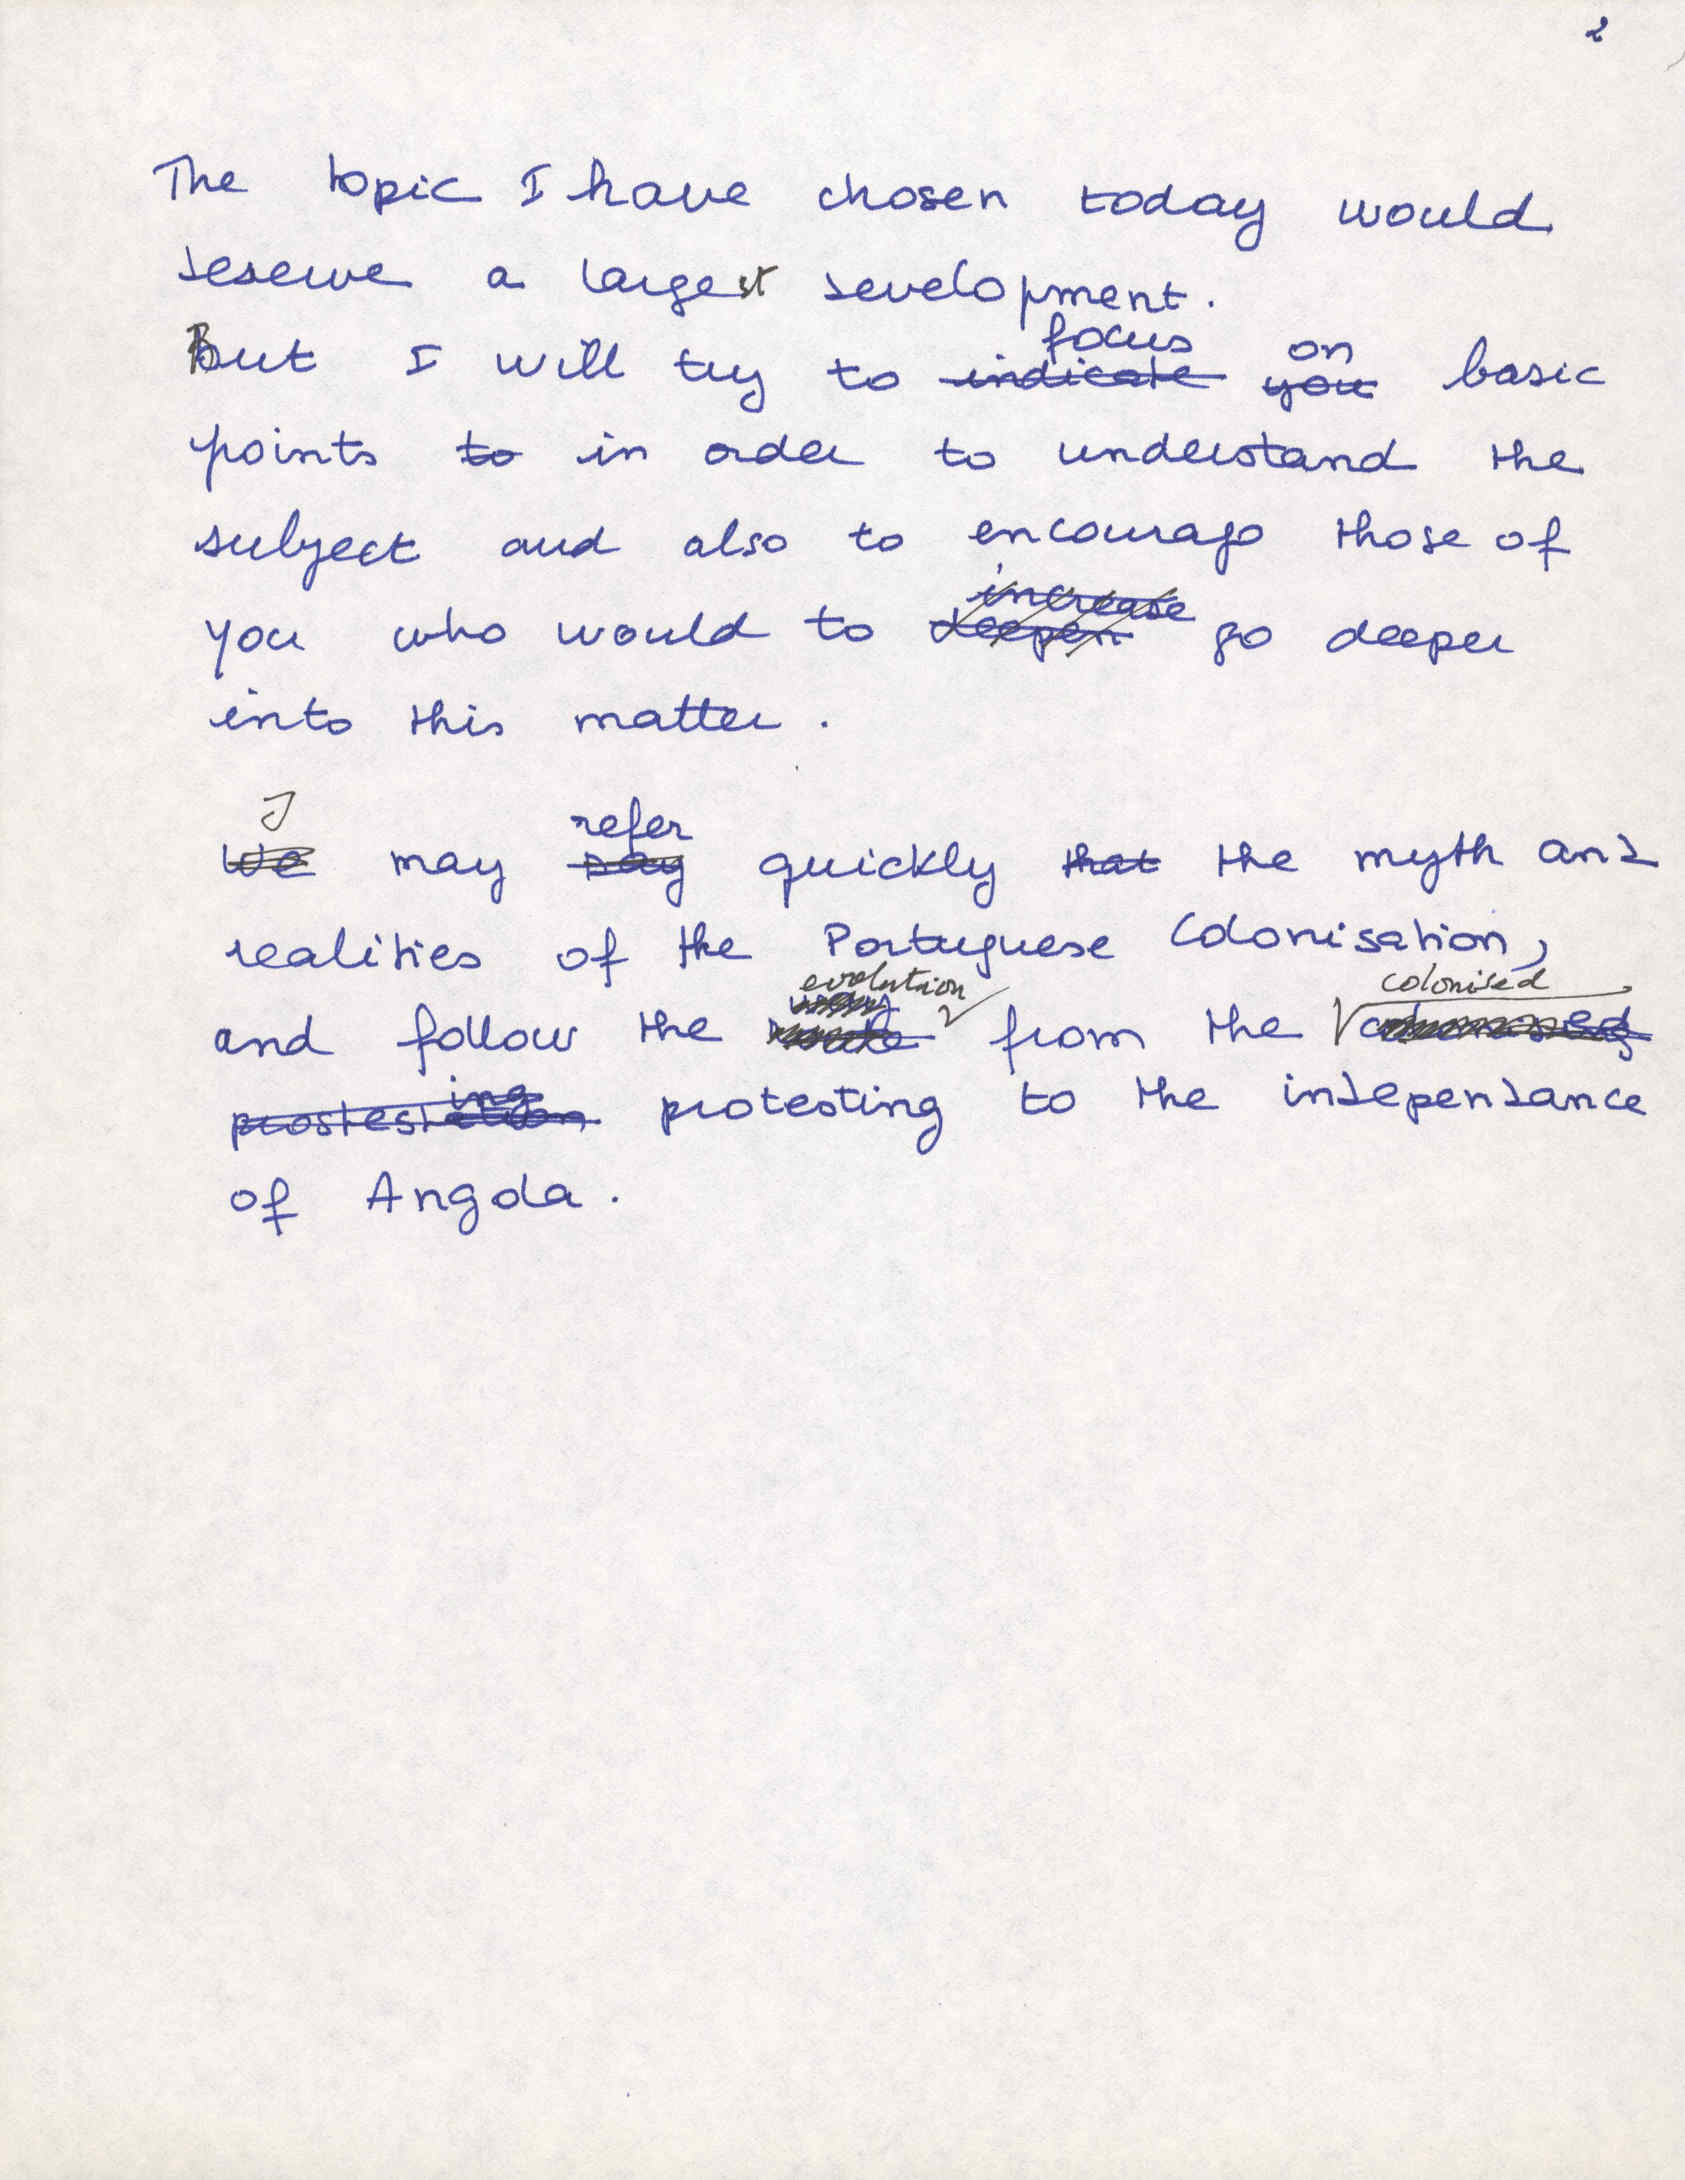 2
The topic I have chosen today would
deserve a largest development.
But I will try to indicate focus you on basic
points to in order to understand the
subject and also to encourage those of
you who would to deepen increase go deeper
into this matter.
We I may say refer quickly that the myth and
realities of the Portuguese Colonisation,
and follow the evolution from the colonised
prostestation ing protesting to the independance
of Angola.